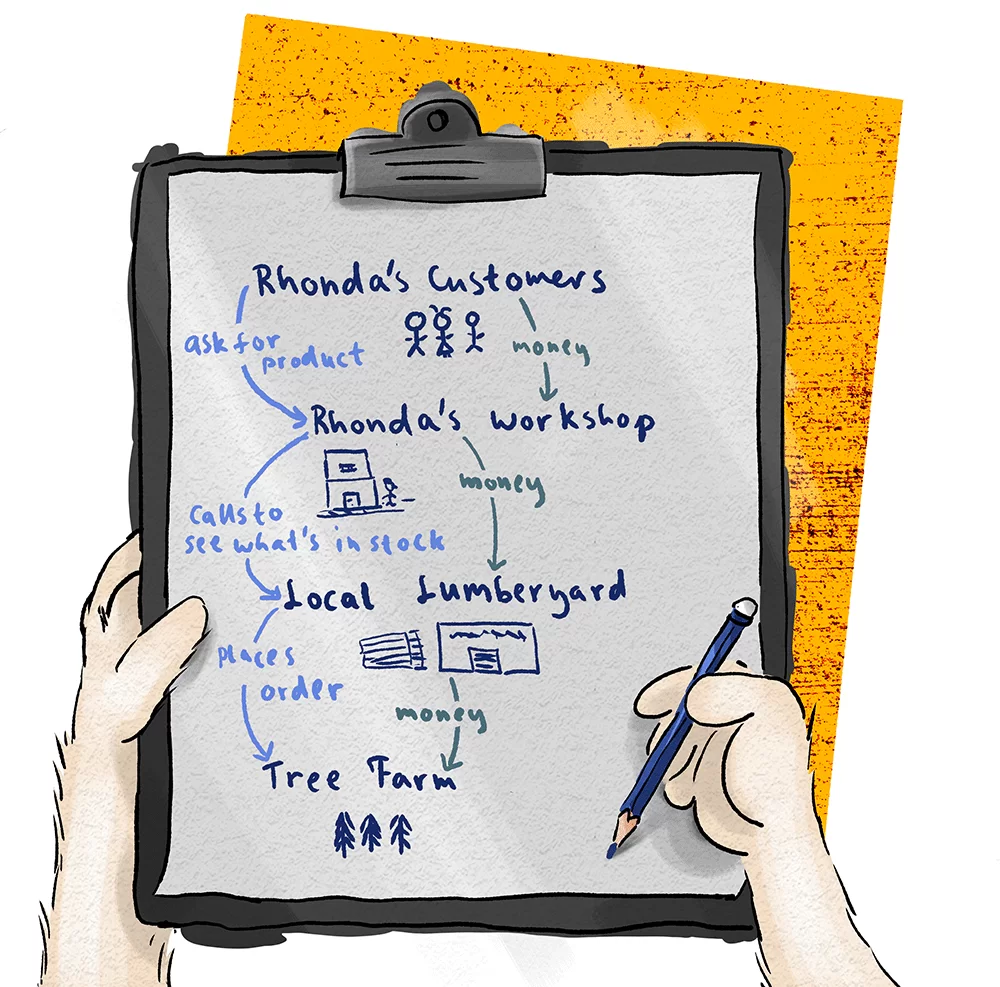 Rhonda's Customers
ask for
product
money
Rhonda's workshop
money
Calls to
see what's in stock
Local Lumberyard
places
order
money
Tree Farm